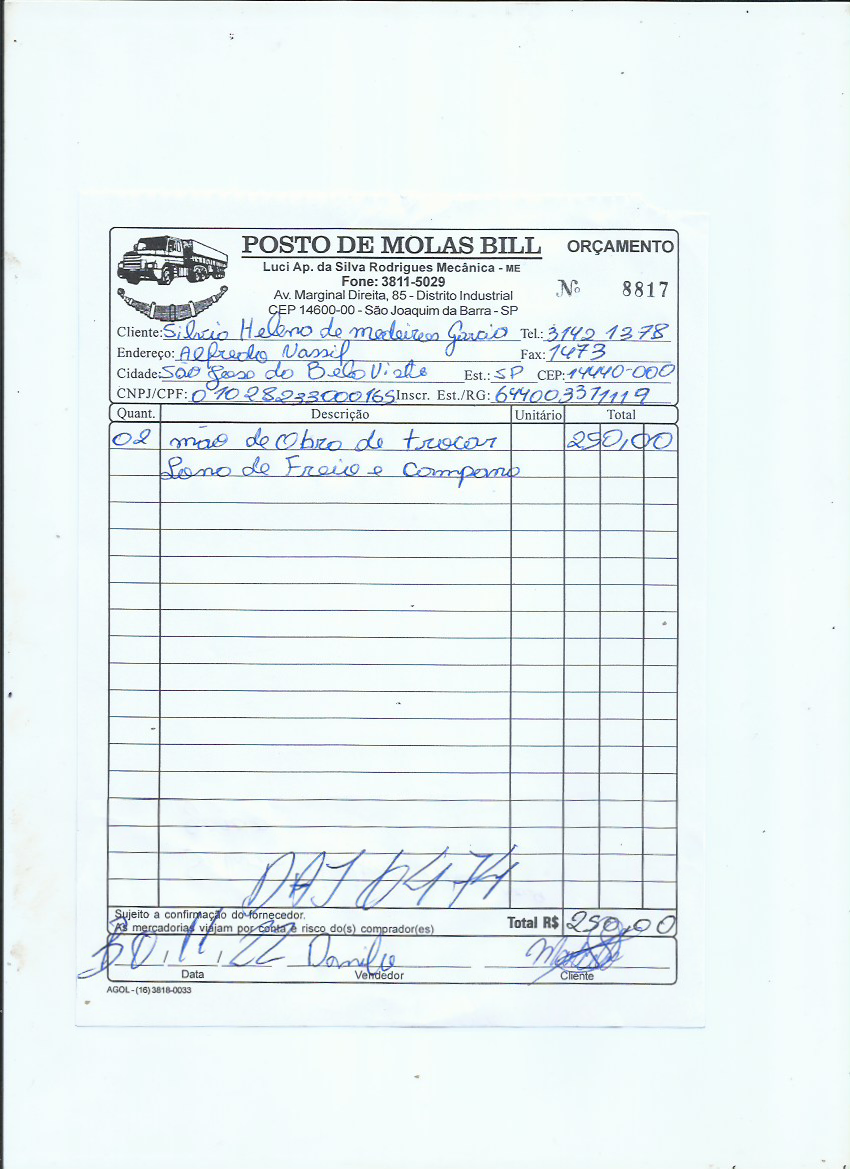 POSTO DE MOLAS BILL ORÇAMENTO
Luci Ap. da Silva Rodrigues Mecânica - ME
Fone: 3811-5029
Av. Marginal Direita, 85 - Distrito Industrial
CEP 14600-00 - São Joaquim da Barra - SP
Nº 8817
Cliente: Silvio Heleno de medeiros Garcia Tel.: 3142 1378
Endereço: Alfredo Nassif Fax: 1473
Cidade: São Jose do Bela Vista Est.: SP CEP: 14440-000
CNPJ/CPF: 01028233000165 Inscr. Est./RG: 644003371119
Quant. Descrição Unitário Total
02 mão de Obra de trocar 250,00
Lona de Freio e Campana
DAJ 0474
Sujeito a confirmação do fornecedor.
As mercadorias viajam por conta e risco do(s) comprador(es)
Total R$ 250,00
30, 11, 22 Danilo
Data Vendedor Cliente
AGOL - (16) 3818-0033